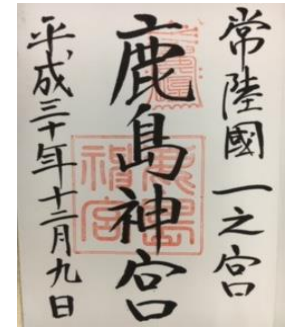 常陸國一之宮
鹿島神宮
鹿島神宮
平成三十年十二月九日